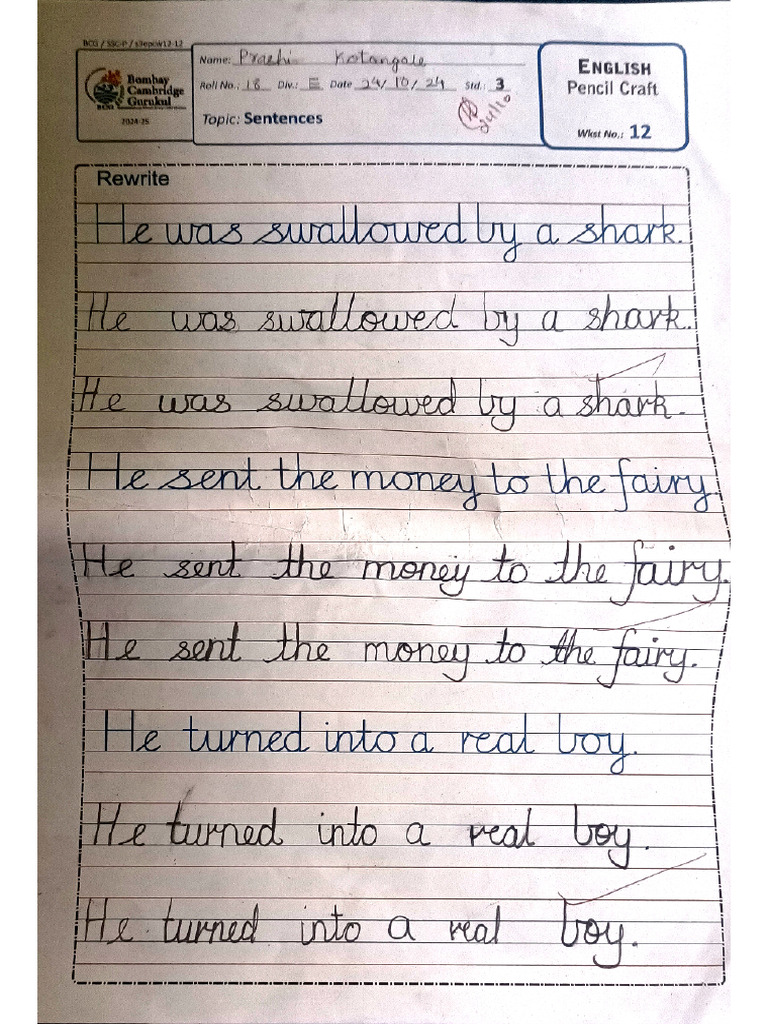 BCG / SSC-P / s3epcw12-12
Bombay
Cambridge
Gurukul
2024-25
Name: Prachi Kotangale
Roll No.: 18 Div.: E Date 24/10/24 Std.: 3
Topic: Sentences
24/10
ENGLISH
Pencil Craft
Wkst No.: 12
Rewrite
He was swallowed by a shark.
He was swallowed by a shark.
He was swallowed by a shark.
He sent the money to the fairy.
He sent the money to the fairy.
He sent the money to the fairy.
He turned into a real boy.
He turned into a real boy.
He turned into a real boy.